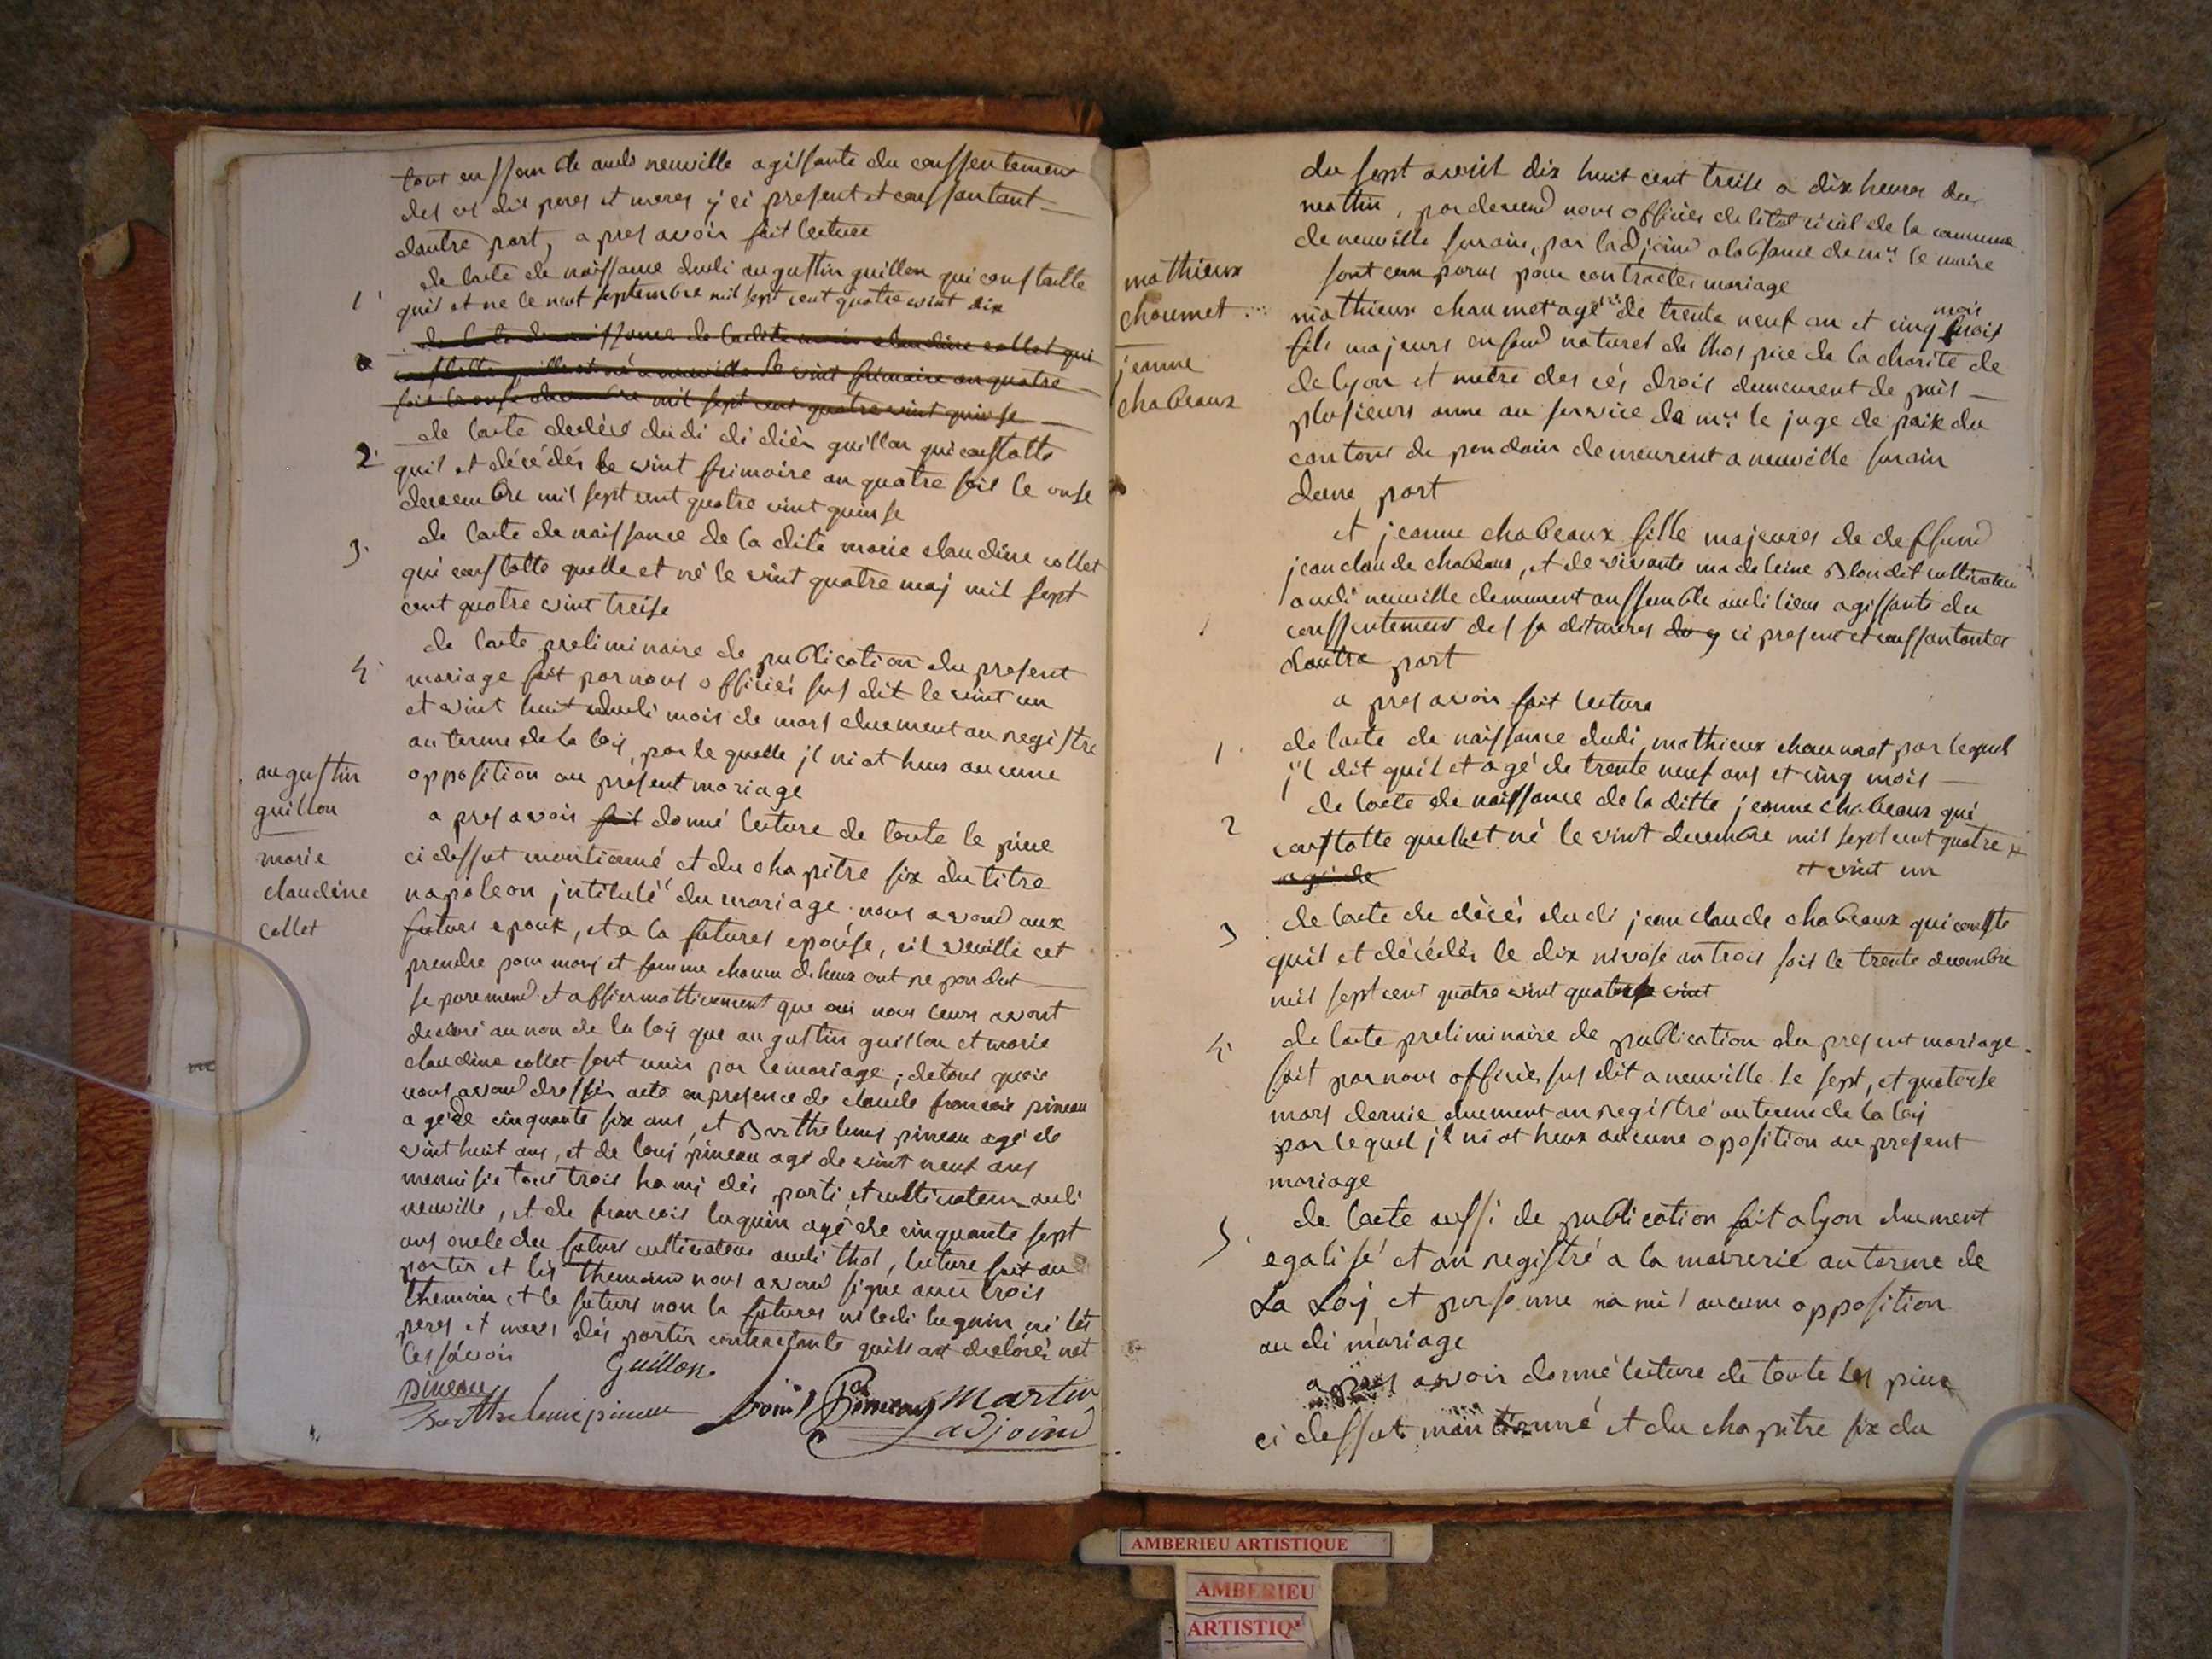 tout enssemble audi neuville agissante du conssentement
des ces dit peres et meres y ci present et conssantant
dautre part, a pres avoir fait lecture
1 de lacte de naissance dudi augustin guillon qui constatte
quil et ne le neuf septembre mil sept cent quatre vint dix
de lacte de naissance de ladite marie claudine collet qui
constatte quelle et né a neuville le vint frimaire an quatre
soit le onse decembre mil sept cent quatre vint quinse
2 de lacte decices dudi di dièr guillon qui constatte
quil et décédér le vint frimaire an quatre soit le onse
decembre mil sept cent quatre vint quinse
3 de lacte de naissance de la dite marie claudine collet
qui constatte quelle et né le vint quatre maj mil sept
cent quatre vint treise
4 de lacte preliminaire de publication du present
mariage fait par nous officiér sus dit le vint un
et vint huit dudi mois de mars duement an registre
au terme de la loij, par le quelle jl ni at heus aucune
opposition au présent mariage
augustin
guillon
marie
claudine
collet
a pres avoir fait donné lecture de toute le piece
ci dessut montionné et du chapitre six du titre
napoleon jntitulé du mariage. nous avond aux
futurs epoux, et a la futures epouse, sil veuille cet
prendre pour marij et femme chacun deheux ont repondut
separemend et affiermattivement que oui nous leurs avont
declaré au non de la loij que augustin guillon et marie
claudine collet sont unis par le mariage; de tous quoie
nous avond dressér acte en presence de claude francois pineau
agé de cinquante six ans, et Barthelemy pineau agé de
vint huit ans, et de louis pineau agé de vint neuf ans
menuisié tous trois hamij dés parti et cultivateur audi
neuville, et de francois luguin agé de cinquante sept
ans oncle du futurs cultivateur audi thol, lecture fait au
partir et lés themoind nous avond signé avec trois
themoin et le futurs non la futures ni ledi luguin ni lés
peres et meres dés partir contractante quils ont declarér net
les savoir
Guillon
pineau
Barthelemie pineau Louis Pineau Martin
adjoind
du sept avril dix huit cent treise a dix heures du
mathin, par devend nous officiér de létat civil de la commune
de neuville surain, par ladjoind a labsance de mr le maire
sont comparus pour contracter mariage
mathieux
choumet
jeanne
chabeaux
mathieux chaumet agé de trente neuf an et cinq mois mois
fils majeurs enfand naturel de lhospice de la charité de
de lyon et metre des cés drois demeurent de puis
plusieurs anne au service de mr le juge de paix du
contons de pondain demeurent a neuville surain
dune part
et jeanne chabeaux fille majeures de deffund
jean claude chabeaux, et de vivante madeleine Blondit cultivateur
audi neuville demeurent anssemble audi lieux agissante du
conssentement des sa ditmeres du y ci present et conssantantes
dautre part
a pres avoir fait lecture
1 de lacte de naissance dudi mathieux chaumet par lequel
jl dit quil et agé de trente neuf ans et cinq mois
2 de lacte de naissance de la ditte jeanne chabeaux qui
constatte quelle et né le vint decembre mil sept cent quatre
agé de et vint un
3 de lacte de décés dudi jean claude chabeaux qui constte
quil et décédér le dix nivose an trois soit le trente decembre
mil sept cent quatre vint quatorse vint
4 de lacte preliminaire de publication du present mariage
fait par nous officiér sus dit a neuville le sept, et quatorse
mars dernie duement anregistré au terme de la loij
par lequel jl ni at heux aucune oposition au present
mariage
5 de lacte aussi de publication fait a lyon duement
egalisé et anregistré a la mairerie au terme de
La Loij et personne na mis aucune opposition
au di mariage
apres avoir donné lecture de toute les piece
ci dessut montionné et du chapitre six du
AMBERIEU ARTISTIQUE
AMBERIEU
ARTISTIQ